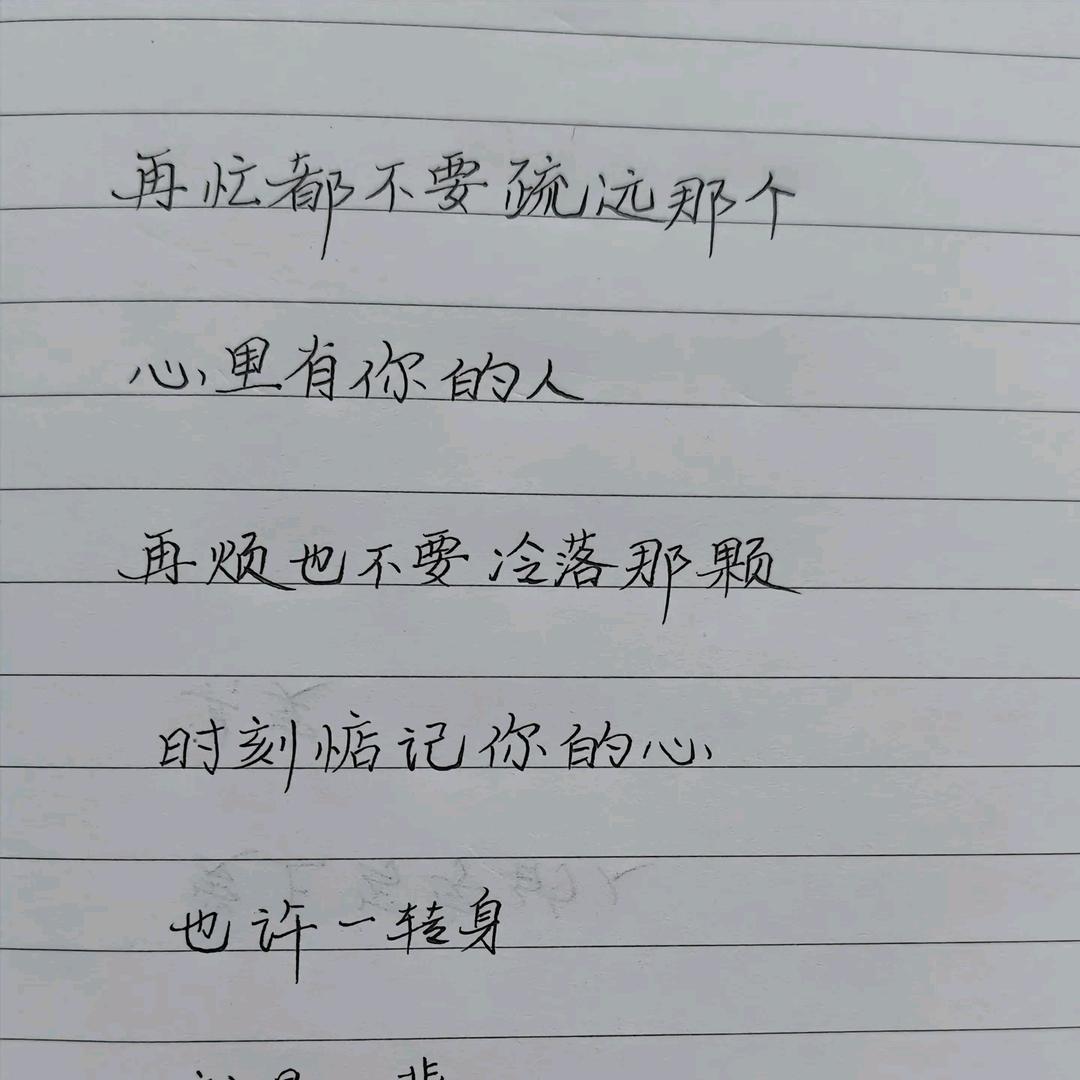 再忙都不要疏远那个
心里有你的人
再烦也不要冷落那颗
时刻惦记你的心
也许一转身